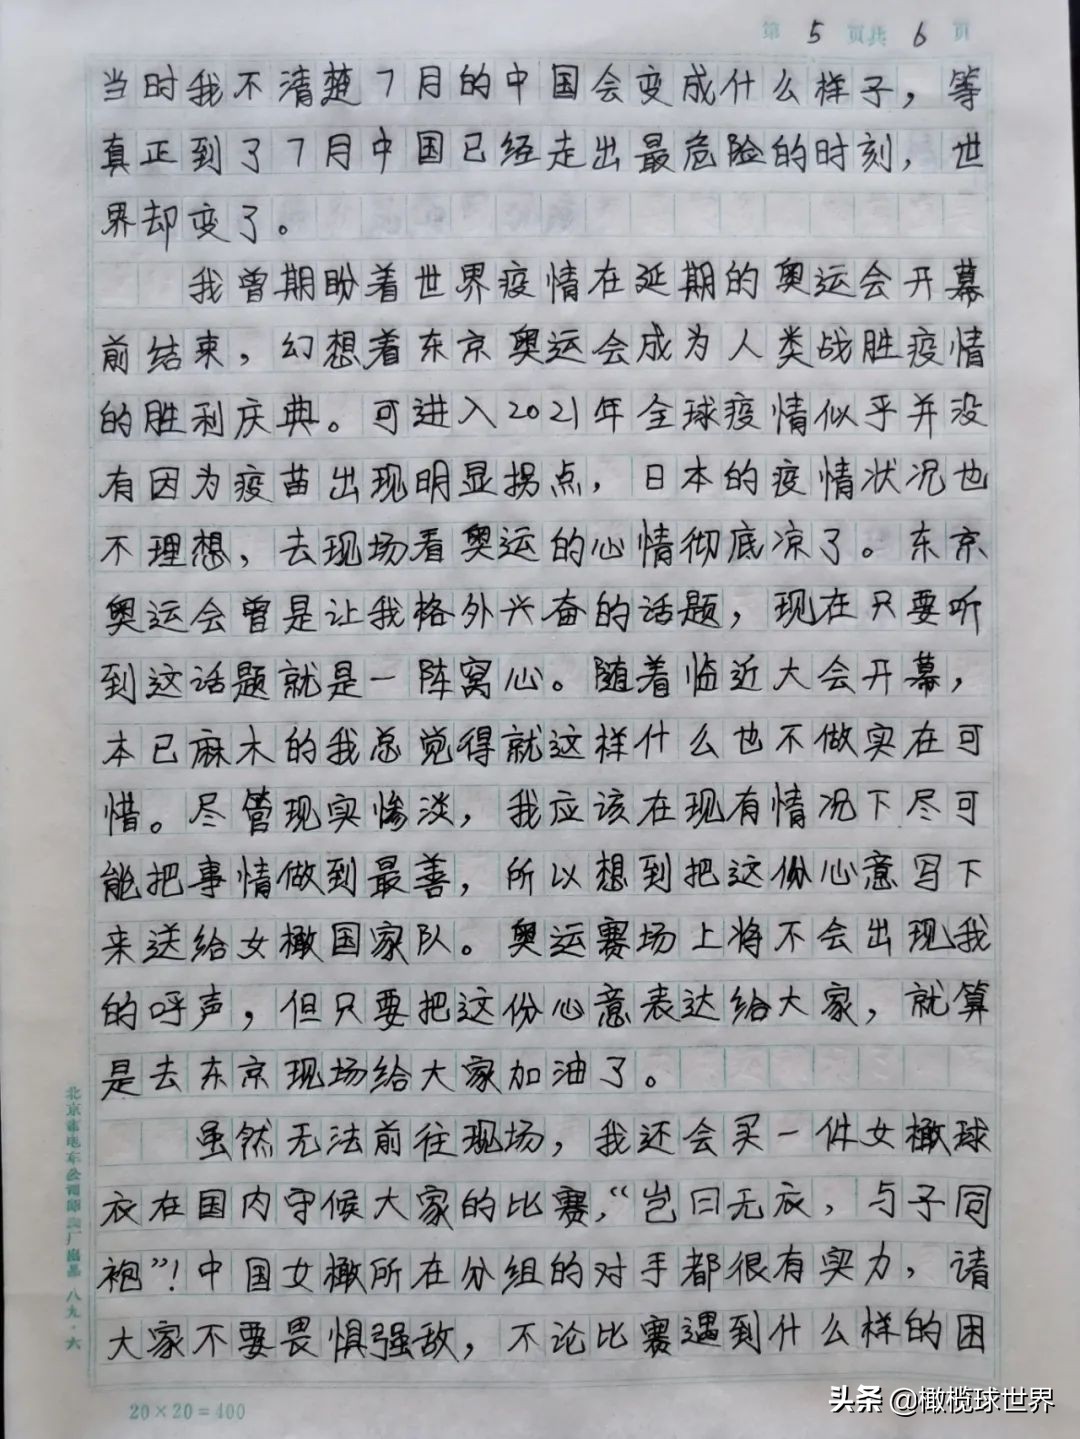 第 5 页共 6 页
当时我不清楚7月的中国会变成什么样子，等
真正到了7月中国已经走出最危险的时刻，世
界却变了。
我曾期盼着世界疫情在延期的奥运会开幕
前结束，幻想着东京奥运会成为人类战胜疫情
的胜利庆典。可进入2021年全球疫情似乎并没
有因为疫苗出现明显拐点，日本的疫情状况也
不理想，去现场看奥运的心情彻底凉了。东京
奥运会曾是让我格外兴奋的话题，现在只要听
到这话题就是一阵窝心。随着临近大会开幕，
本已麻木的我总觉得就这样什么也不做实在可
惜。尽管现实惨淡，我应该在现有情况下尽可
能把事情做到最善，所以想到把这份心意写下
来送给女橄国家队。奥运赛场上将不会出现我
的呼声，但只要把这份心意表达给大家，就算
是去东京现场给大家加油了。
虽然无法前往现场，我还会买一件女橄球
衣在国内守候大家的比赛，“岂曰无衣，与子同
袍”！中国女橄所在分组的对手都很有实力，请
大家不要畏惧强敌，不论比赛遇到什么样的困
北京市电车公司印刷厂出品 八九·六
20×20=400
头条 @橄榄球世界